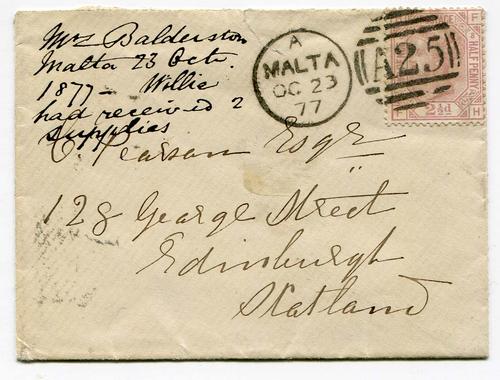 Mrs Balderston
Malta 23 Octr.
1877 - Willie
had received 2
supplies
A
MALTA
OC 23
77
A25
HALF PENNY
2½d
F
F H
C. Pearson Esqre
128 George Street
Edinburgh
Skatland